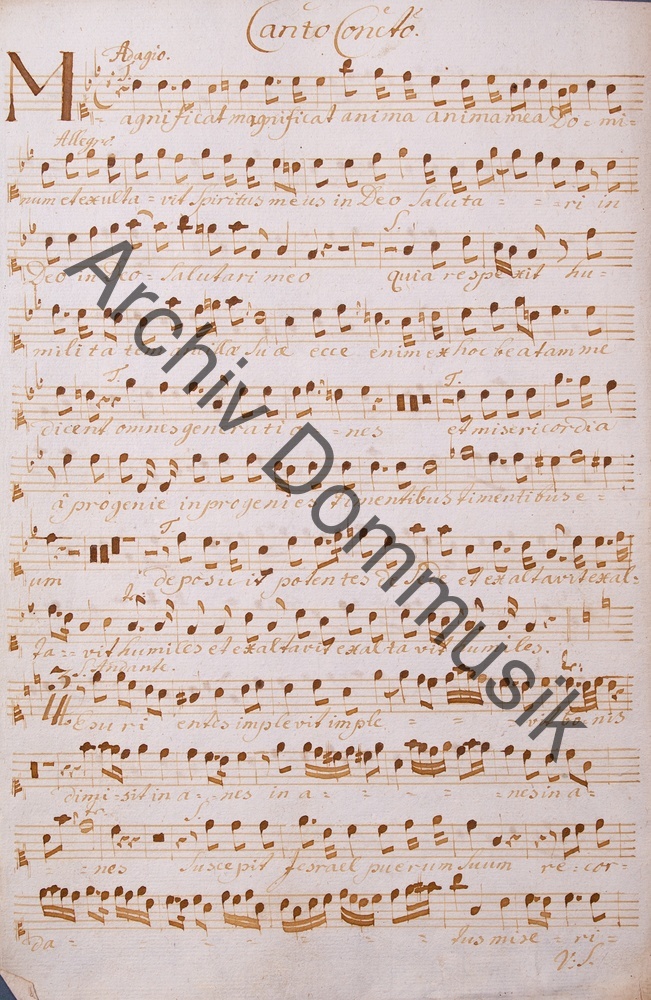 Canto Conc:to.
Adagio.
Magnificat magnificat anima anima mea Do=mi=
Allegro
num et exulta=vit Spiritus meus in Deo Saluta=ri in
S.
Deo in Deo=Salutari meo quia respexit hu=
milita Suæ ecce enim ex hoc beatam me
T. T.
dicent omnes generatio=nes et misericordia
â progenie in progenies timentibus timentibus e=
T.
um deposuit potentes de Sede et exaltavit exal=
ta=vit humiles et exaltavit exaltavit humiles.
S. Andante.
3/4
Esuri entes implevit imple= =vit bonis
dimisit in a=nes in a= =nes in a=
S.
=nes Suscepit Jesrael puerum Suum re=cor=
da= =tus mise=ri=
V: S.
Archiv Dommusik